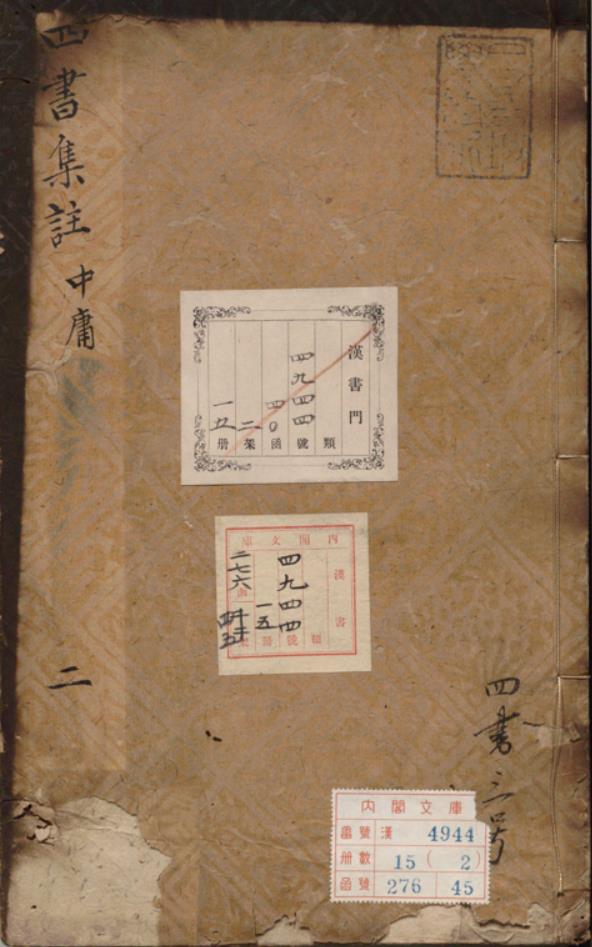 四書集註 中庸
二
漢書門
類
四九四四號
四〇函
二架
一五册
内閣文庫
漢書
四九四四
類號
一五
册
二七六
函
架
四書三号
内閣文庫
番號 漢 4944
册數 15 ( 2 )
函號 276 45